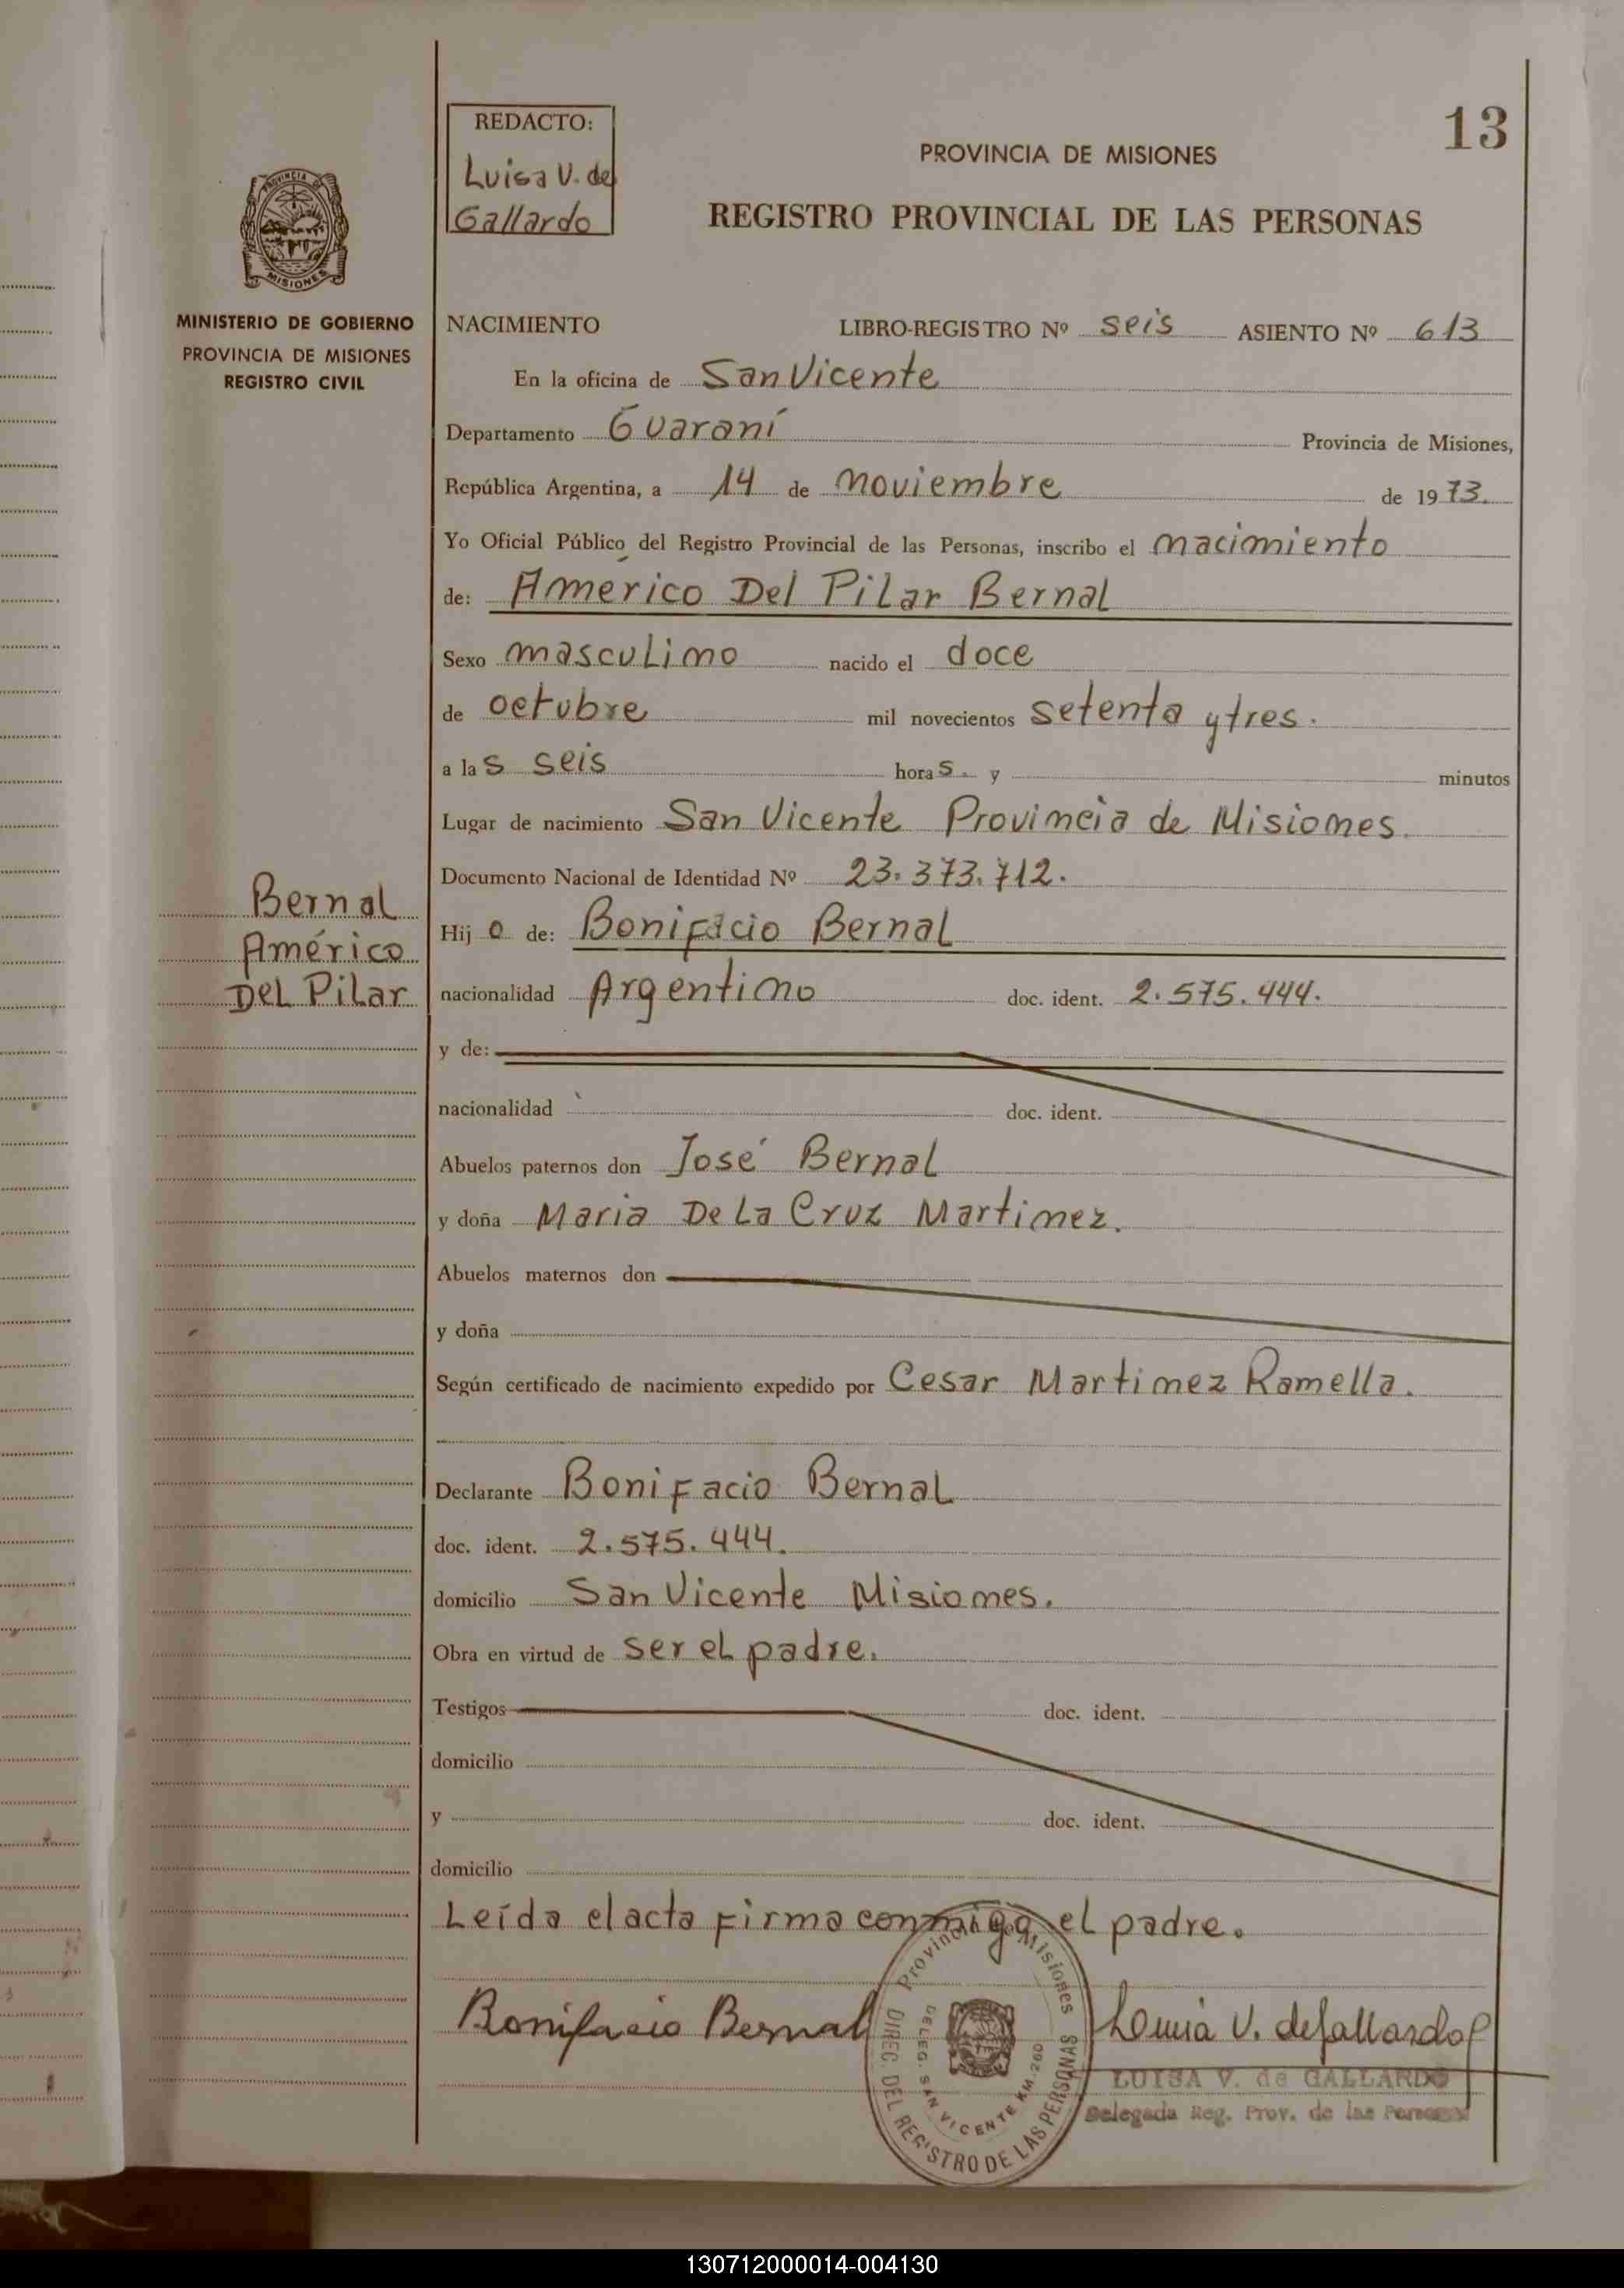 REDACTO:
Luisa V. de
Gallardo
13
PROVINCIA DE MISIONES
REGISTRO PROVINCIAL DE LAS PERSONAS
PROVINCIA DE
MISIONES
MINISTERIO DE GOBIERNO
PROVINCIA DE MISIONES
REGISTRO CIVIL
NACIMIENTO LIBRO-REGISTRO Nº seis ASIENTO Nº 613
En la oficina de San Vicente
Departamento Guaraní Provincia de Misiones,
República Argentina, a 14 de noviembre de 1973.
Yo Oficial Público del Registro Provincial de las Personas, inscribo el nacimiento
de: Américo Del Pilar Bernal
Sexo masculino nacido el doce
de octubre mil novecientos setenta y tres.
a las seis horas. y minutos
Lugar de nacimiento San Vicente Provincia de Misiones.
Documento Nacional de Identidad Nº 23.373.712.
Bernal
Américo
Del Pilar
Hijo de: Bonifacio Bernal
nacionalidad Argentino doc. ident. 2.575.444.
y de:
nacionalidad doc. ident.
Abuelos paternos don José Bernal
y doña Maria De La Cruz Martinez.
Abuelos maternos don
y doña
Según certificado de nacimiento expedido por Cesar Martinez Ramella.
Declarante Bonifacio Bernal
doc. ident. 2.575.444.
domicilio San Vicente Misiones.
Obra en virtud de ser el padre.
Testigos doc. ident.
domicilio
y doc. ident.
domicilio
Leída el acta firma conmigo el padre.
Bonifacio Bernal
Provincia de Misiones
DIREC. DEL REGISTRO DE LAS PERSONAS
DELEG. SAN VICENTE KM. 260
Luisa V. de Gallardo
LUISA V. de GALLARDO
Delegada Reg. Prov. de las Personas
130712000014-004130